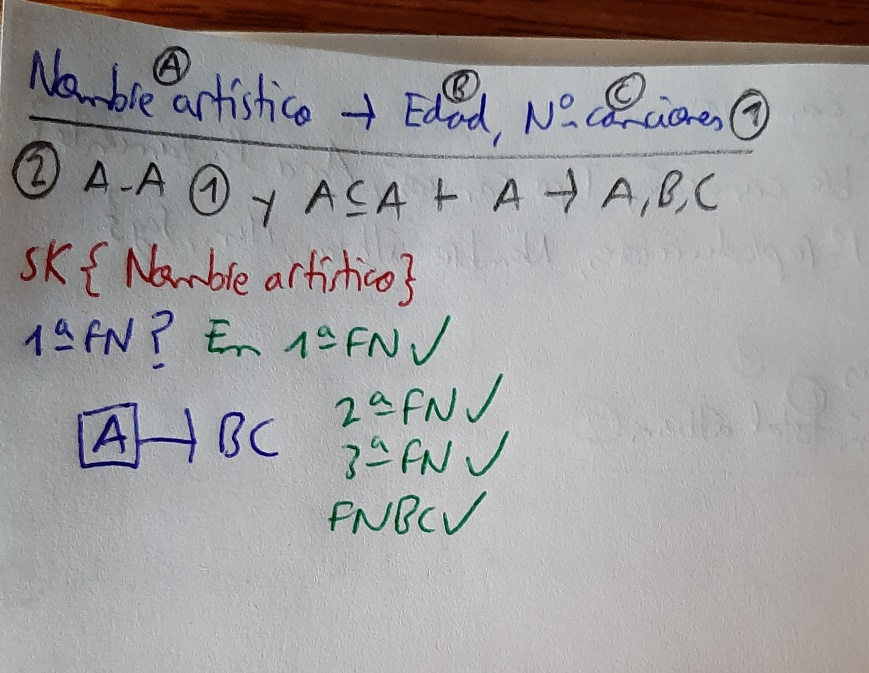 Nombre artístico → Edad, Nº canciones ①
Ⓐ Ⓑ Ⓒ
② A-A ① y A⊆A + A → A,B,C
SK{ Nombre artístico}
1ª FN? En 1ª FN ✓
2ª FN ✓
A → BC
3ª FN ✓
FNBC ✓